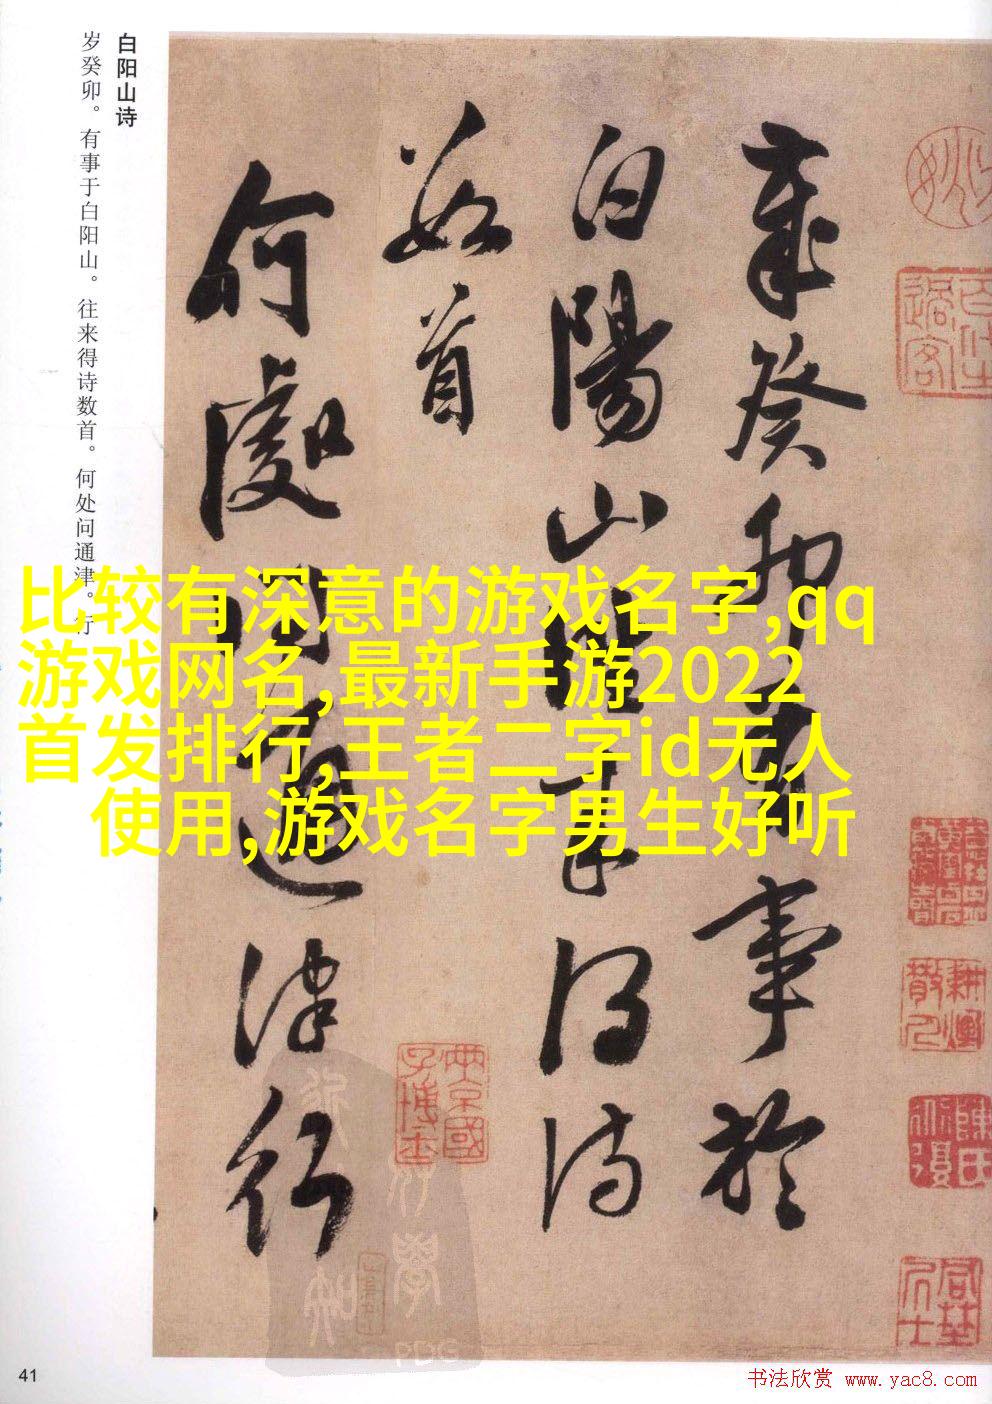 白阳山诗
岁癸卯。有事于白阳山。往来得诗数首。何处问通津。行
岁癸卯有事於
白陽山往来得诗
数首
何處问通津行
比较有深意的游戏名字,qq
游戏网名,最新手游2022
首发排行,王者二字id无人
使用,游戏名字男生好听
41
书法欣赏 www.yac8.com